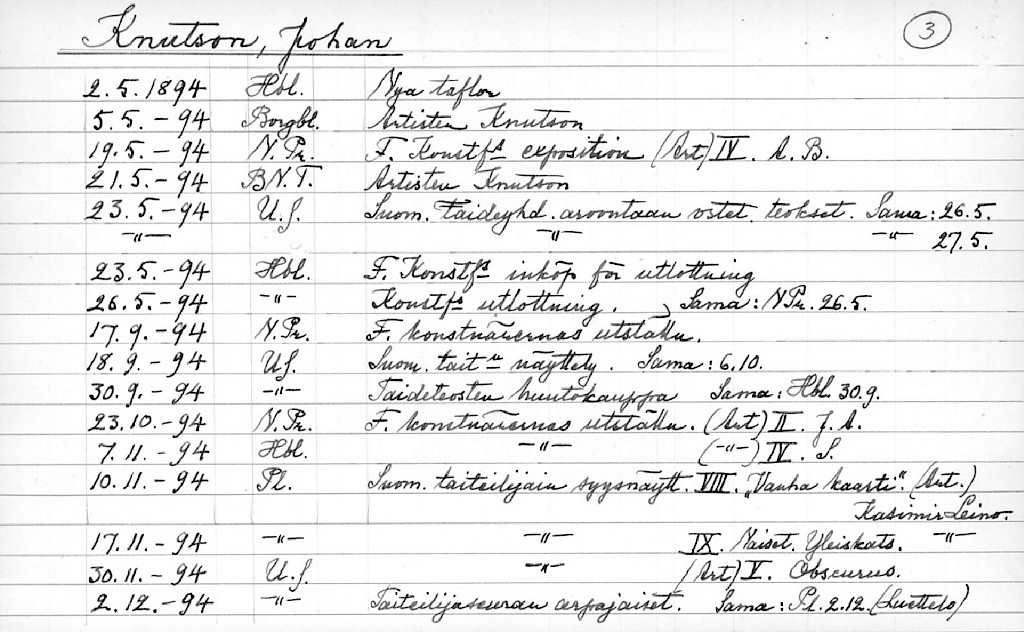 Knutson, Johan 3
2.5.1894 Hbl. Nya taflor
5.5.-94 Borgbl. Artisten Knutson
19.5.-94 N.Pr. F. Konstf:s exposition (Art) IV. A.B.
21.5.-94 BN.T. Artisten Knutson
23.5.-94 U.S. Suom. Taideyhd. arvontaan ostet. teokset. Sama: 26.5.
-"- -"- -"- 27.5.
23.5.-94 Hbl. F. Konstf:s inköp för utlottning
26.5.-94 -"- Konstf:s utlottning. Sama: N.Pr. 26.5.
17.9.-94 N.Pr. F. konstnärernas utställn.
18.9.-94 U.S. Suom. tait:n näyttely. Sama: 6.10.
30.9.-94 -"- Taideteosten huutokauppa Sama: Hbl. 30.9.
23.10.-94 N.Pr. F. konstnärernas utställn. (Art) II. J.A.
7.11.-94 Hbl. -"- (-"-) IV. S.
10.11.-94 Pl. Suom. taiteilijain syysnäytt. VIII. „Vanha kaarti". (Art.)
Kasimir Leino.
17.11.-94 -"- -"- IX. Naiset. Yleiskats. -"-
30.11.-94 U.S. -"- (Art) V. Obscurus.
2.12.-94 -"- Taiteilijaseuran arpajaiset. Sama: Pl. 2.12. (Luettelo)